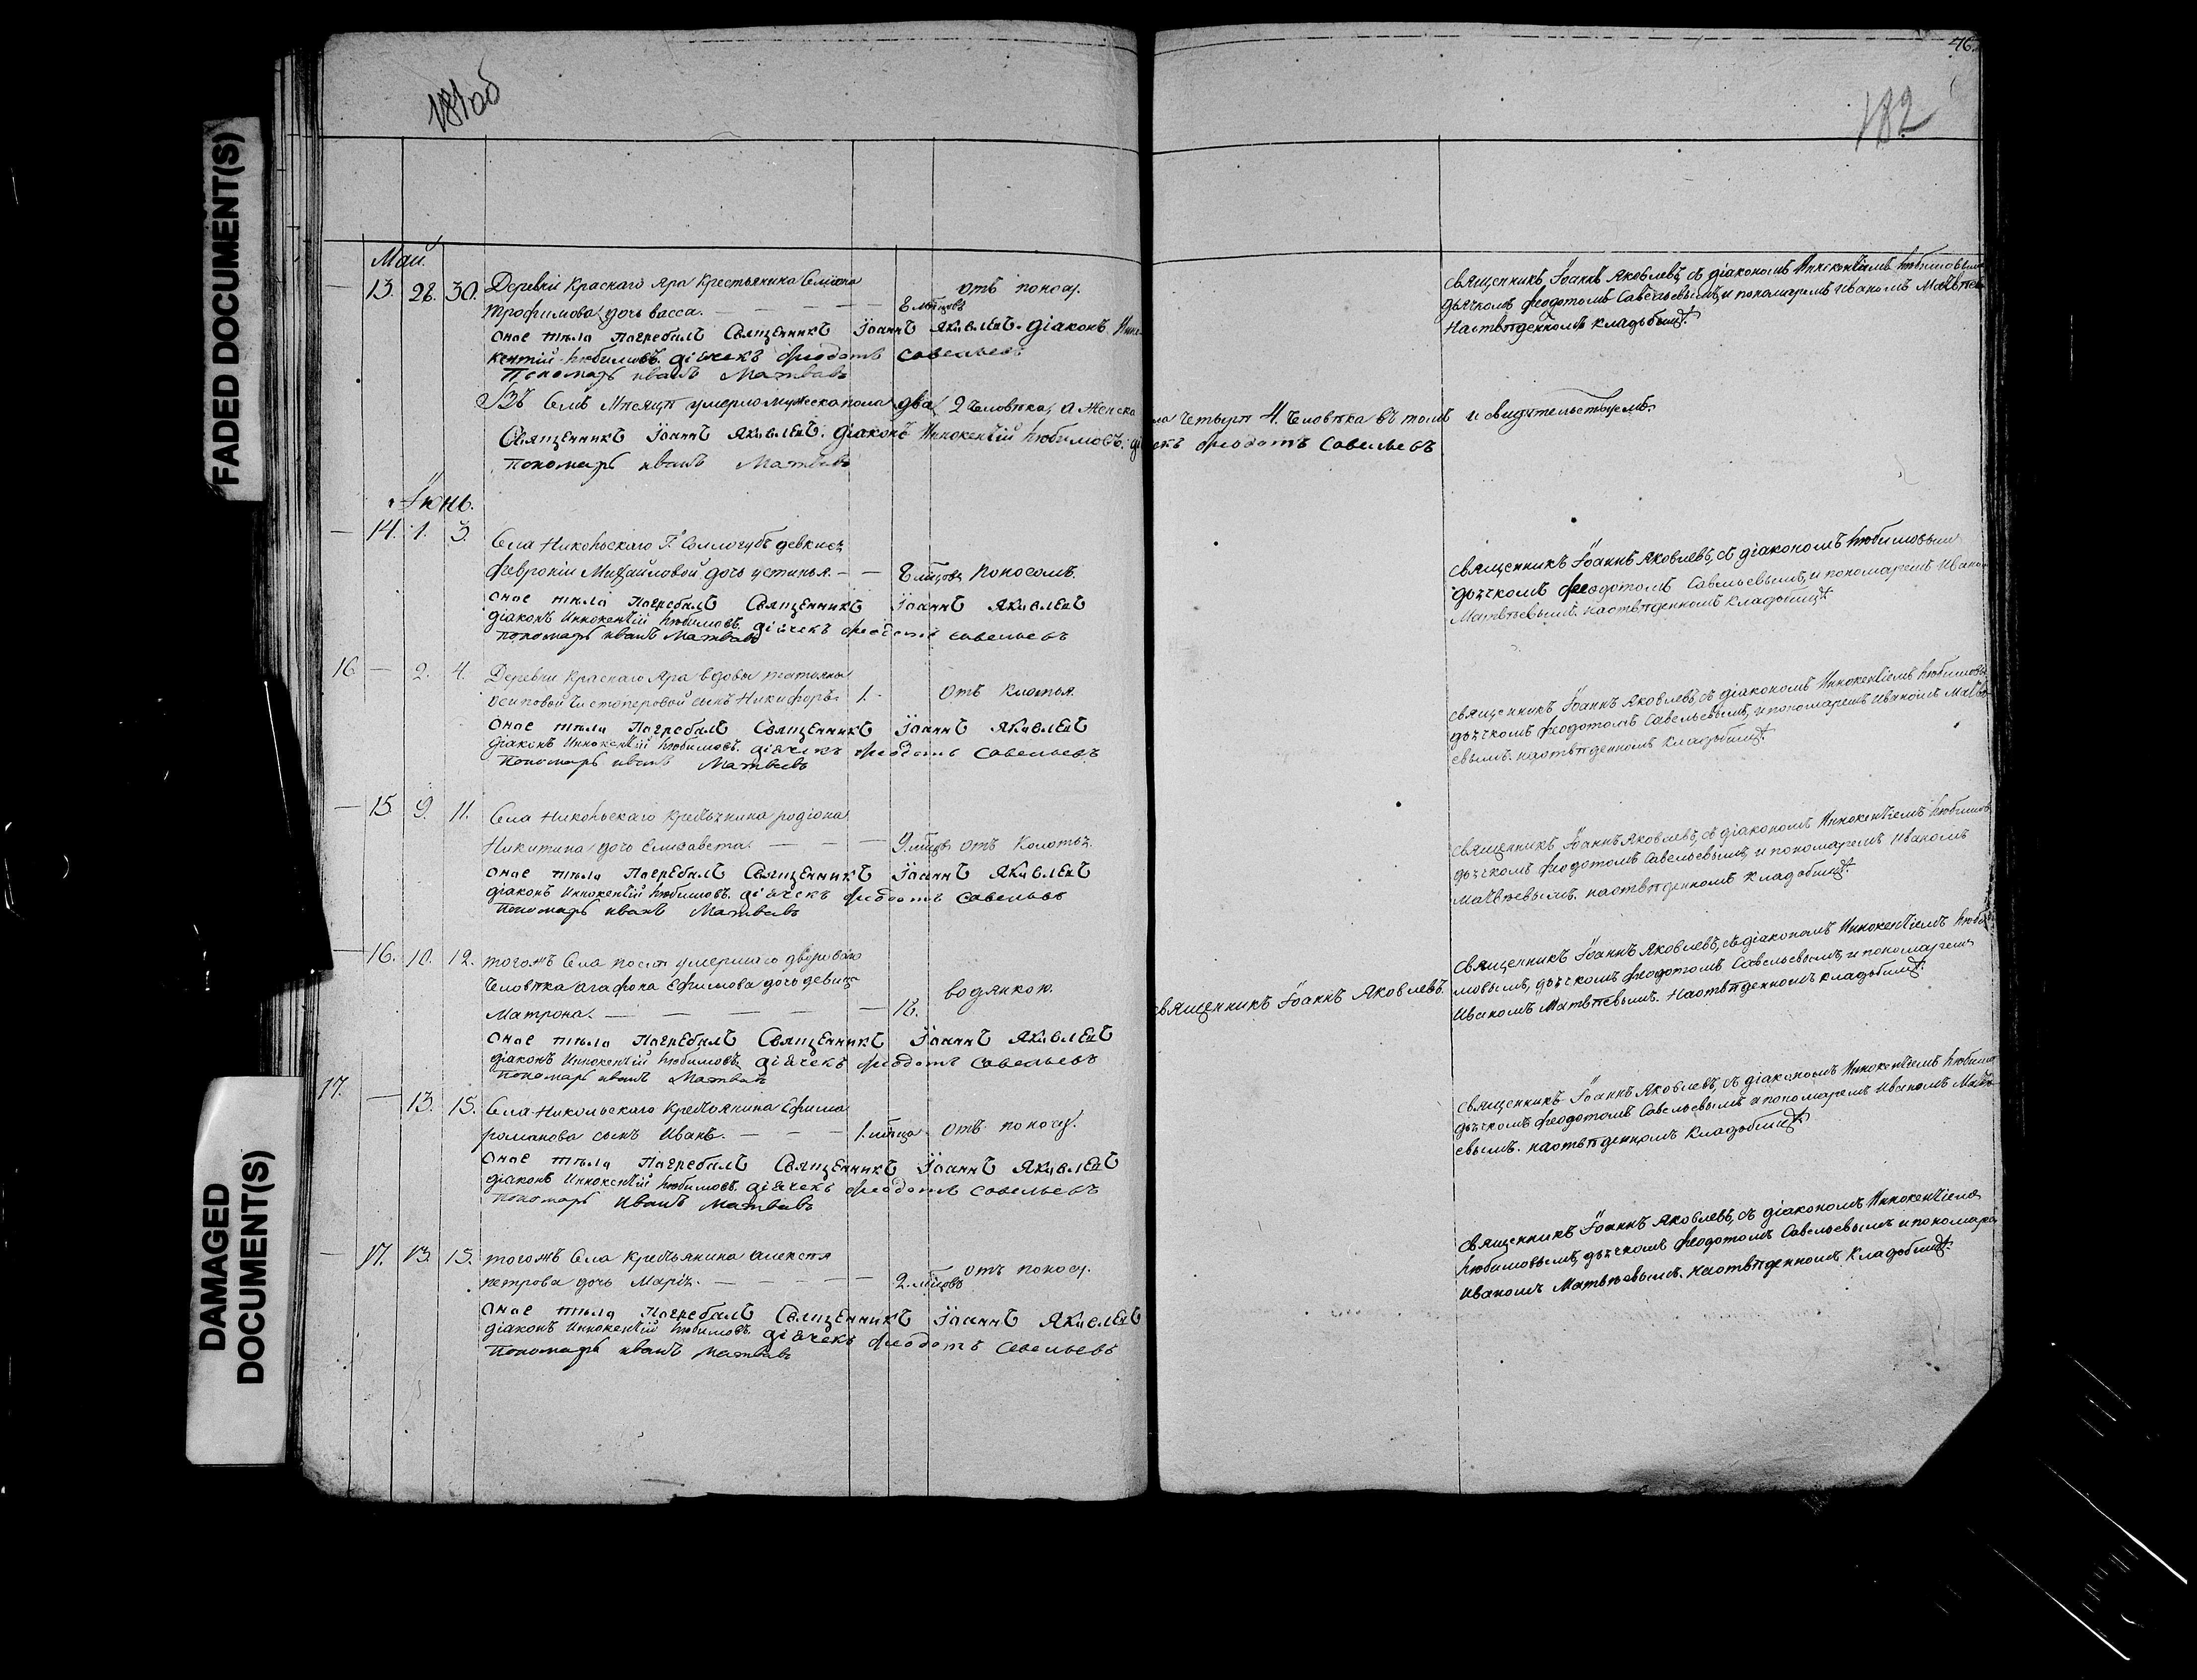 181 об
46
182
FADED DOCUMENT(S)
DAMAGED
DOCUMENT(S)
Май.
— 13. 28. 30. Деревни Краснаго Яра крестьянина Семиона
Трофимова дочь васса. — — — 8 мцовъ отъ поносу.
оное тѣло Погребалъ Священникъ Іоаннъ Яковлевъ. діаконъ Инно-
кентій Любимовъ. діячекъ Феодотъ Савельевъ
Пономарь иванъ Матвѣвъ
священникъ Іоаннъ Яковлевъ, съ діакономъ Иннокентіемъ Любимовымъ
дьячкомъ феодотомъ Савельевымъ, и пономаремъ иваномъ
На отведенномъ кладбищѣ.
Въ семъ Мѣсяцѣ умерло мужеска пола два 2 человѣка, а женска пола четырѣ 4. человѣка въ томъ и свидѣтельствуемъ.
Священникъ Іоаннъ Яковлевъ. діаконъ Иннокентій Любимовъ. діячекъ Феодотъ Савельевъ
пономарь иванъ Матвѣвъ
Іюнь.
— 14. 1. 3. Села Никольскаго Г. Соллогубъ девки
февроніи Михайловой дочь устинья. — — 8 мцовъ поносомъ.
оное тѣло Погребалъ Священникъ Іоаннъ Яковлевъ
діаконъ Иннокентій Любимовъ. діячекъ Феодотъ Савельевъ
пономарь иванъ Матвѣвъ
священникъ Іоаннъ Яковлевъ, съ діакономъ Любимовымъ
дьячкомъ феодотомъ Савельевымъ, и пономаремъ Ивано
Матвѣевымъ. на отвѣденномъ кладбищѣ
16 — 2. 4. Деревни Краснаго Яра вдовы татьяны
осиповой сынъ Никифоръ. 1. отъ
оное тѣло Погребалъ Священникъ Іоаннъ Яковлевъ
діаконъ Иннокентій Любимовъ. діячекъ Феодотъ Савельевъ
пономарь иванъ Матвѣвъ
священникъ Іоаннъ Яковлевъ, съ діакономъ Иннокентіемъ Любимовы
дьячкомъ феодотомъ Савельевымъ, и пономаремъ Иваномъ Матвѣ-
евымъ. на отвѣденномъ кладбищѣ.
— 15 9. 11. Села Никольскаго родіона
Никитина дочь Елисавета. — — — 9. мцвъ отъ колотья.
оное тѣло Погребалъ Священникъ Іоаннъ Яковлевъ
діаконъ Иннокентій Любимовъ. діячекъ Феодотъ Савельевъ
пономарь иванъ Матвѣвъ
священникъ Іоаннъ Яковлевъ, съ діакономъ Иннокентіемъ Любимов
дьячкомъ феодотомъ Савельевымъ, и пономаремъ Иваномъ
Матвѣевымъ. на отвѣденномъ кладбищѣ.
— 16. 10. 12. тогожъ Села послѣ умершаго двороваго
человѣка агафона Ефимова дочь девица
Матрона. — — — — — 18. водянкою. священникъ Іоаннъ Яковлевъ.
оное тѣло Погребалъ Священникъ Іоаннъ Яковлевъ
діаконъ Иннокентій Любимовъ. діячекъ Феодотъ Савельевъ
пономарь иванъ Матвѣвъ
священникъ Іоаннъ Яковлевъ, съ діакономъ Иннокентіемъ Люби
мовымъ, дьячкомъ феодотомъ Савельевымъ, и пономаремъ
Иваномъ Матвѣевымъ. На отвѣденномъ кладбищѣ.
17. — 13. 15. Села Никольскаго крестьянина Ефима
романова сынъ Иванъ. — — — 1. мцца отъ поносу.
оное тѣло Погребалъ Священникъ Іоаннъ Яковлевъ
діаконъ Иннокентій Любимовъ. діячекъ Феодотъ Савельевъ
пономарь Иванъ Матвѣвъ
священникъ Іоаннъ Яковлевъ, съ діакономъ Иннокентіемъ Любимо
дьячкомъ феодотомъ Савельевымъ и пономаремъ Иваномъ Матвѣ-
евымъ. на отвѣденномъ кладбищѣ
— 17. 13. 15. тогожъ Села крестьянина алексѣя
петрова дочь Марія. — — — — 2. мцовъ отъ поносу.
оное тѣло Погребалъ Священникъ Іоаннъ Яковлевъ
діаконъ Иннокентій Любимовъ. діячекъ Феодотъ Савельевъ
пономарь иванъ Матвѣвъ
священникъ Іоаннъ Яковлевъ, съ діакономъ Иннокентіемъ
Любимовымъ, дьячкомъ феодотомъ Савельевымъ и пономаре
Иваномъ Матвѣевымъ. на отвѣденномъ кладбищѣ.